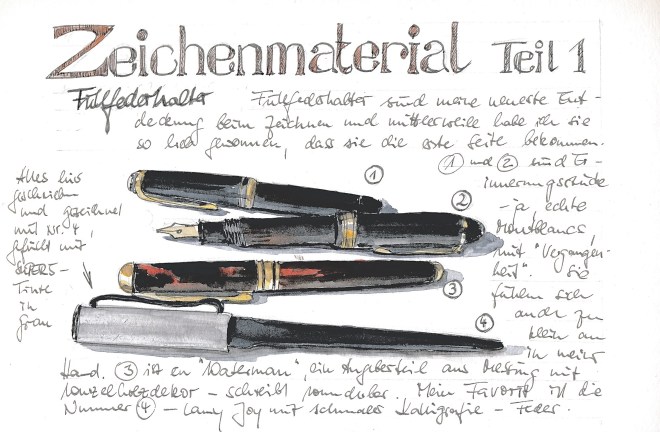 Zeichenmaterial Teil 1
Füllfederhalter
Füllfederhalter sind meine neueste Ent-
deckung beim Zeichnen und mittlerweile habe ich sie
so lieb gewonnen, dass sie die erste Seite bekommen.
① und ② sind Er-
innerungsstücke
- ja, echte
Montblancs,
mit "Vergangen-
heit". Sie
fühlen sich
auch zu
klein an
in meiner
Hand. ③ ist ein "Waterman", ein Angeberteil aus Messing mit
Wurzelholzdekor - schreibt wunderbar. Mein Favorit ist die
Nummer ④ - Lamy Joy mit schmaler Kalligrafie - Feder.
Alles hier
geschrieben
und gezeichnet
mit Nr. 4,
gefüllt mit
Tinte
in
Grau
①
②
③
④